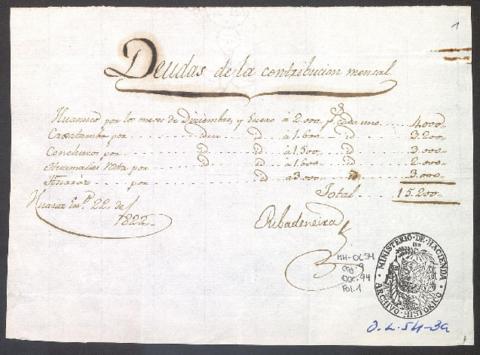 1
Deudas de la contribucion mensal.
Huanuco por los meses de Diziembre, y Enero à 2.000 p.s cada uno.... 4.000
Caxatambo por .... idem .... id .... à 1.600 .... id .... 3.200
Conchucos por .... id .... à 1.500 .... id .... 3.000
Huamalies resta por .... id .... à 1.600 .... id .... 2.000
Huaraz .... por .... id .... à 3.000 .... id .... 3.000
Total .... 15.200
Huaraz En.o 22 de
1822
Ribadeneira
MH-OL34
Doc. 94
Fol. 1
MINISTERIO·DE·HACIENDA
ARCHIVO·HISTORICO
O.L.54-3a